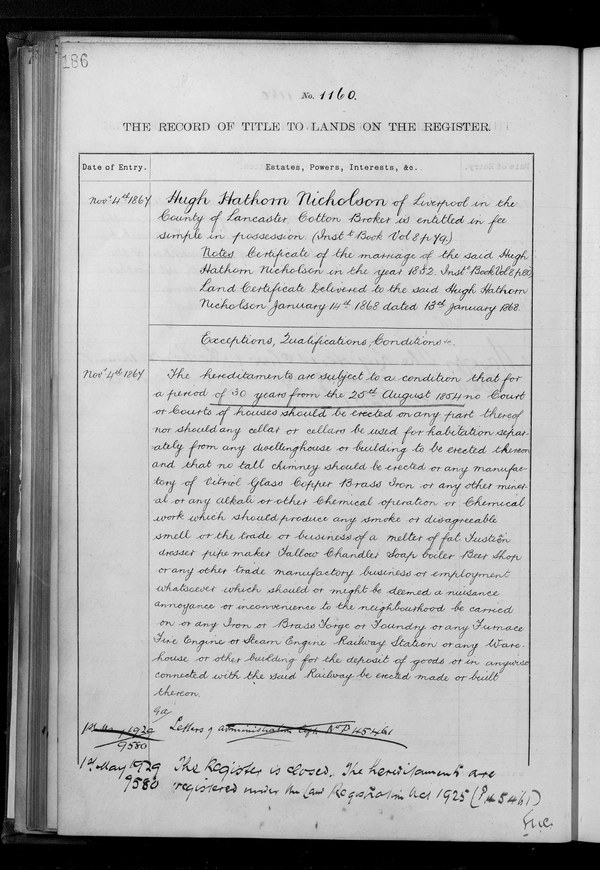 186
No. 1160.
THE RECORD OF TITLE TO LANDS ON THE REGISTER.
Date of Entry.
Estates, Powers, Interests, &c.
Novr. 4th 1867
Hugh Hathorn Nicholson of Liverpool in the
County of Lancaster Cotton Broker is entitled in fee
simple in possession (Instt Book Vol 8 p 79)
Notes Certificate of the marriage of the said Hugh
Hathorn Nicholson in the year 1852 Instt Book Vol 8 p 80
Land Certificate Delivered to the said Hugh Hathorn
Nicholson January 14th 1868 dated 13th January 1868.
Exceptions, Qualifications, Conditions &c.
Novr. 4th 1867
The hereditaments are subject to a condition that for
a period of 30 years from the 25th August 1854 no Court
or Courts of houses should be erected on any part thereof
nor should any cellar or cellars be used for habitation separ-
ately from any dwellinghouse or building to be erected thereon
and that no tall chimney should be erected or any manufac-
tory of Vitriol Glass Copper Brass Iron or any other miner-
al or any alkali or other Chemical operation or Chemical
work which should produce any smoke or disagreeable
smell or the trade or business of a melter of fat Fustian
dresser pipe maker Tallow Chandler Soap boiler Beer Shop
or any other trade manufactory business or employment
whatsoever which should or might be deemed a nuisance
annoyance or inconvenience to the neighbourhood be carried
on or any Iron or Brass Forge or Foundry or any Furnace
Fire Engine or Steam Engine Railway Station or any Ware-
house or other building for the deposit of goods or in anywise
connected with the said Railway be erected made or built
thereon.
1st May 1929
9580
Letters of administration No P 45461
1st May 1929
9580
The Register is closed. The hereditaments are
registered under the Land Registration Act 1925 (P 45461)